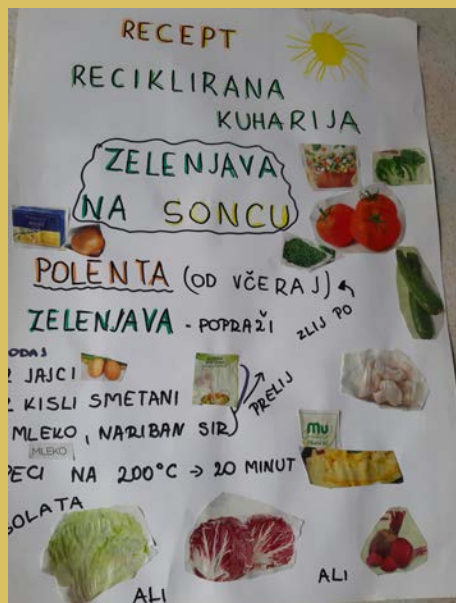 RECEPT
RECIKLIRANA
KUHARIJA
ZELENJAVA
NA SONCU
POLENTA (OD VČERAJ)
ZELENJAVA - POPRAŽI ZLIJ PO
ODAJ
2 JAJCI
2 KISLI SMETANI
MLEKO, NARIBAN SIR
PRELIJ
Mu
MLEKO
PECI NA 200°C → 20 MINUT
SOLATA
ALI
ALI